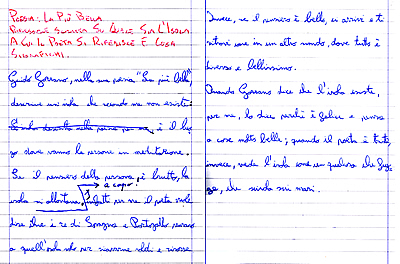 POESIA: LA PIÙ BELLA
RIFLESSIONE SCRITTA SU QUALE SIA L'ISOLA
A CUI IL POETA SI RIFERISCE E COSA
SIGNIFICHI.
Guido Gozzano, nella sua poesia "La più bella",
descrive un'isola che secondo me non esiste.
L'isola descritta nella poesia per me, è il luo
go dove vanno le persone in meditazione.
Se il pensiero della persona, è brutto, la
isola si allontana.
→ a capo!
Infatti per me il poeta vuole
dire che i re di Spagna e Portogallo
a quell'isola solo per ricavarne soldi e risorse
Invece, se il pensiero è bello, ci arrivi e ti
ritrovi come in un altro mondo, dove tutto è
diverso e bellissimo.
Quando Gozzano dice che l'isola esiste,
per me, lo dice perché è felice e pensa
a cose molto belle; quando il poeta è triste,
invece, vede l'isola come un qualcosa che fug
ge, che scivola sui mari.